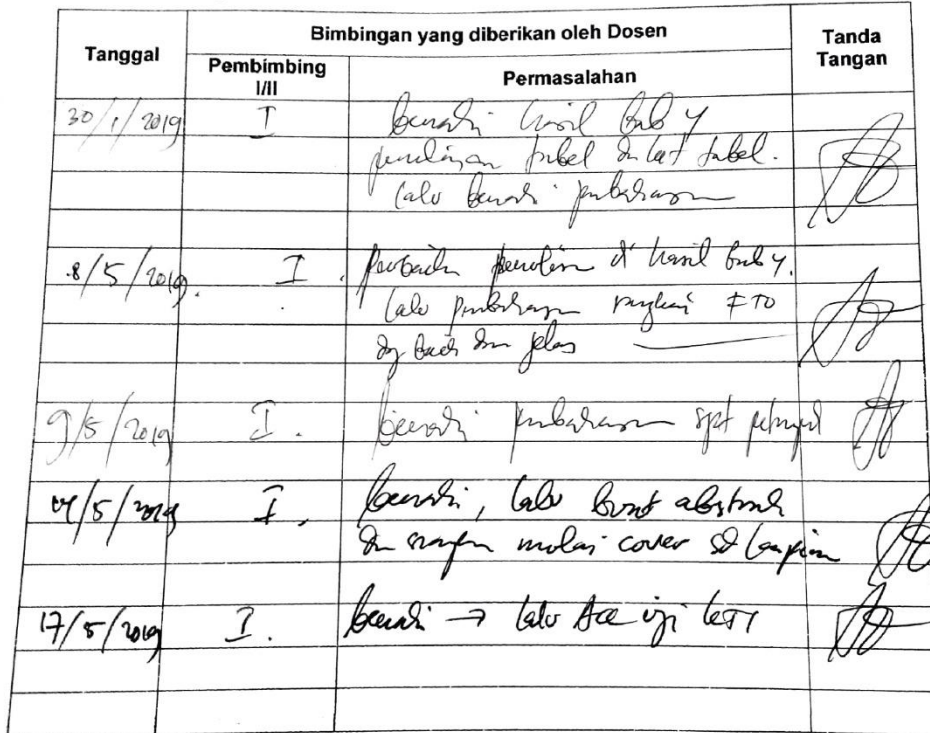 Tanggal
Bimbingan yang diberikan oleh Dosen
Tanda Tangan
Pembimbing I/II
Permasalahan
30/1/2019 I benahi hasil bab 4
penulisan tabel tabel.
lalu benahi pembahasan
8/5/2019. I. penulisan di hasil bab 4.
lalu pembahasan
dg baik dan jelas
9/5/2019 I. benahi pembahasan spt
/5/2019 I. benahi, lalu buat abstrak
dan mulai cover sd
17/5/2019 I. benahi → lalu Acc uji